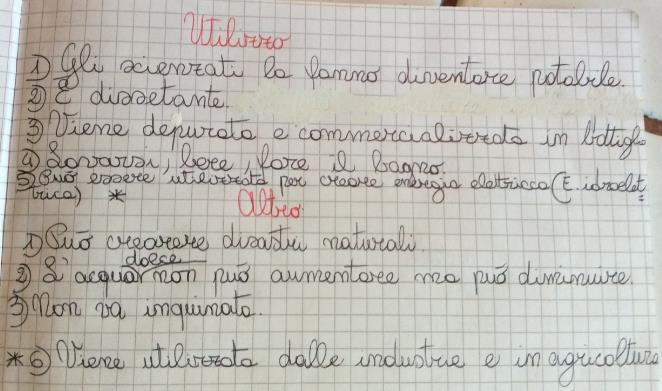 Utilizzo
1) Gli scienzati la fanno diventare potabile.
2) È dissetante.
3) Viene depurata e commercializzata in bottigle
4) Lavarsi, bere, fare il bagno.
5) Può essere utilizzata per creare energia elettricca (E. idroelet=
trica) *
Altro
1) Può crearere disastri naturali.
2) L'acqua dolce non può aumentare ma può diminuire.
3) Non va inquinata.
*6) Viene utilizzata dalle industrie e in agricoltura